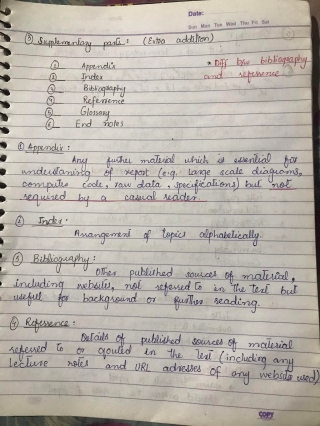 Date:
Sun Mon Tue Wed Thu Fri Sat
③ Supplementary parts: (Extra addition)
① Appendix
* Diff b/w bibliography
② Index
and reference
③ Bibliography
④ Reference
⑤ Glossary
⑥ End notes
① Appendix:
Any further material which is essential for
understanding of report (e.g. large scale diagrams,
computer code, raw data, specifications) but not
required by a casual reader.
② Index:
Arrangement of topics alphabetically.
③ Bibliography:
Other published sources of material,
including websites, not referred to in the text but
useful for background or further reading.
④ Reference:
Details of published sources of material
referred to or quoted in the text (including any
lecture notes and URL adresses of any website used)
COPY